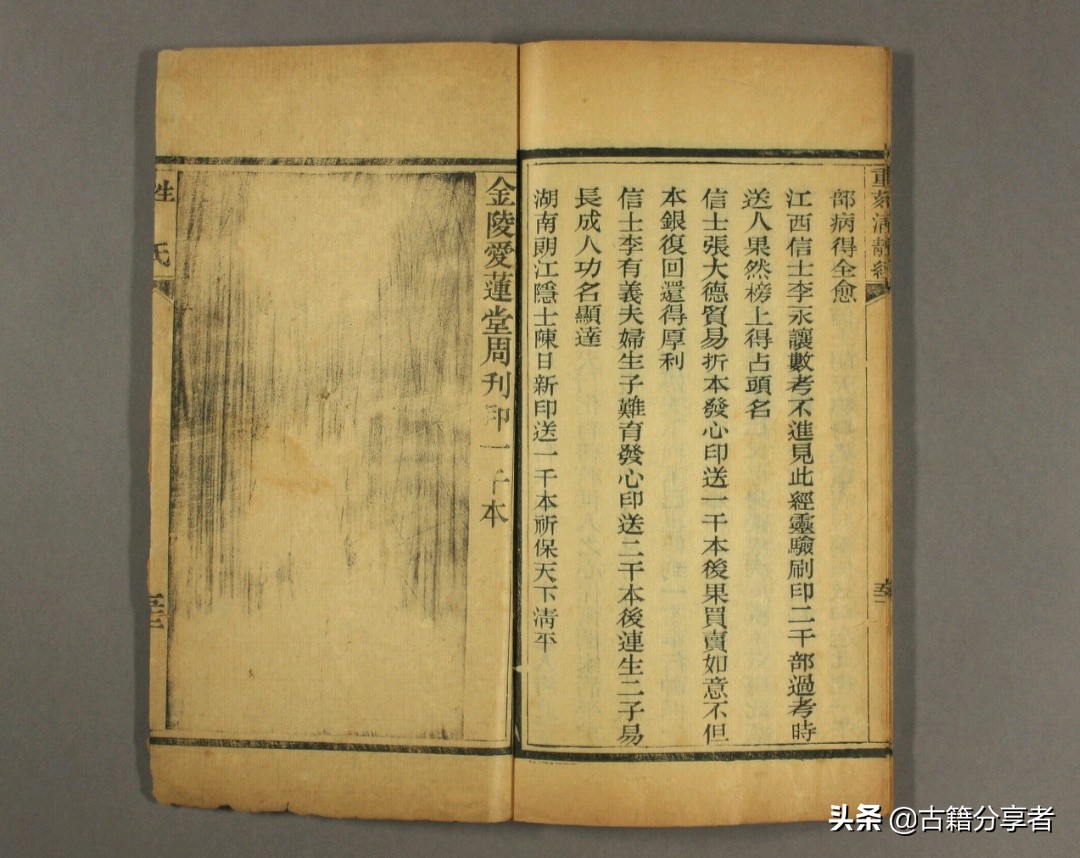 重刻清靜經
部病得全愈
江西信士李永讓數考不進見此經靈驗刷印二千部過考時
送人果然榜上得占頭名
信士張大德貿易折本發心印送一千本後果買賣如意不但
本銀復回還得厚利
信士李有義夫婦生子難育發心印送二千本後連生二子易
長成人功名顯達
湖南朗江隱士陳日新印送一千本祈保天下清平
金陵愛蓮堂周刊印一千本
姓氏
头条 @古籍分享者